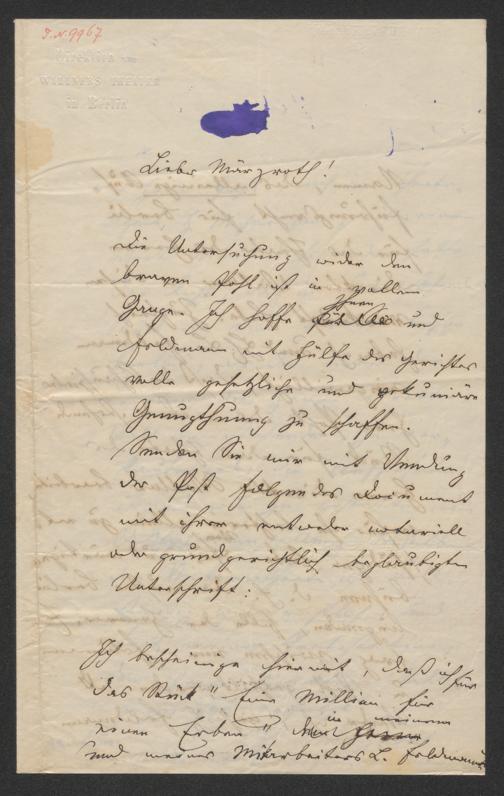 J. N. 9967
Direktion von
WALLNERS THEATER
in Berlin
Lieber Märzroth!
Die Untersuchung wider den
braven Pohl ist in vollem
Gange. Ich hoffe Ihnen und
Feldmann mit Hülfe des Gerichtes
volle gesetzliche und pekuniäre
Genugthuung zu schaffen.
Senden Sie mir mit Wendung
der Post folgendes Document
mit ihrer entweder notariell
oder grundgerichtlich beglaubigten
Unterschrift:
Ich bescheinige hiermit, daß ich für
das Stück "Eine Million für
einen Erben" in meinem
und meines Mitarbeiters L. Feldmanns